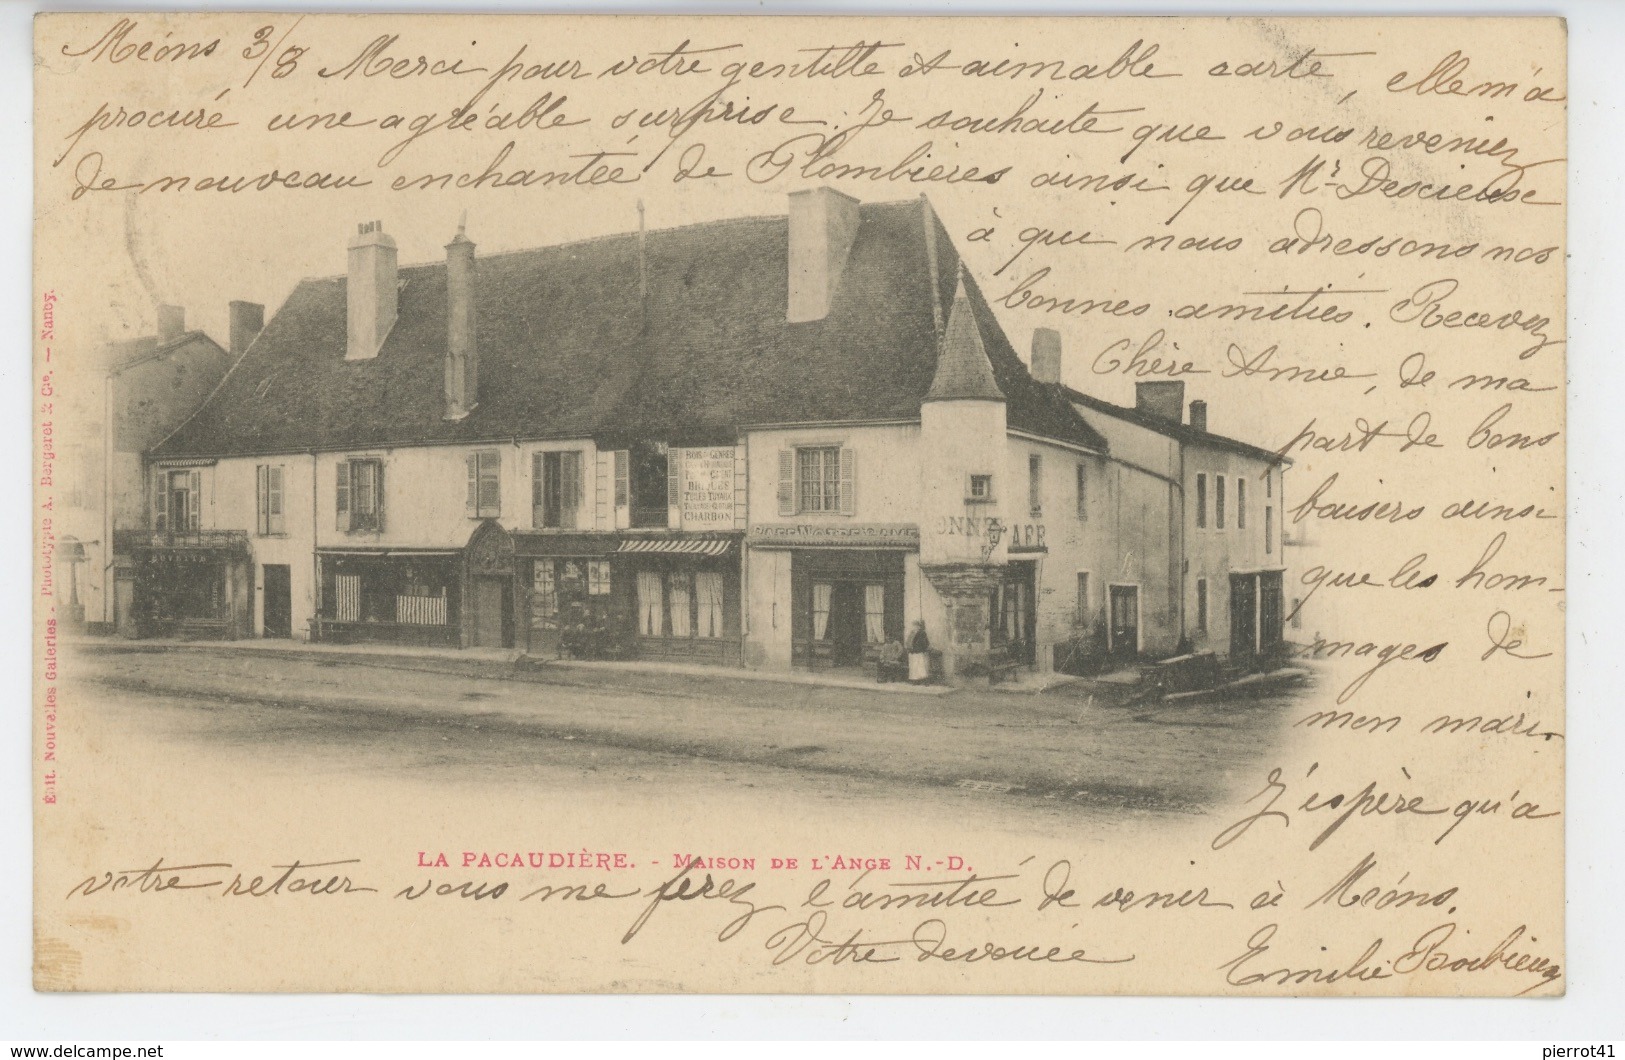 Méons 3/8 Merci pour votre gentille et aimable carte, elle m'a
procuré une agréable surprise. Je souhaite que vous reveniez
de nouveau enchantée de Plombières ainsi que Mr Descieuse
à qui nous adressons nos
bonnes amitiés. Recevez
Chère Amie, de ma
part de bons
baisers ainsi
que les hom-
mages de
mon mari.
J'espère qu'à
votre retour vous me ferez l'amitié de venir à Méons.
Votre dévouée
Emilie
BOIS
BRIQUES
TUILES TUYAUX
CHARBON
CAFÉ NOTRE DAME
ONNE
AFE
LA PACAUDIÈRE. - MAISON DE L'ANGE N.-D.
Édit. Nouvelles Galeries. - Phototypie A. Bergeret & Cie. — Nancy.
delcampe.net
pierrot41